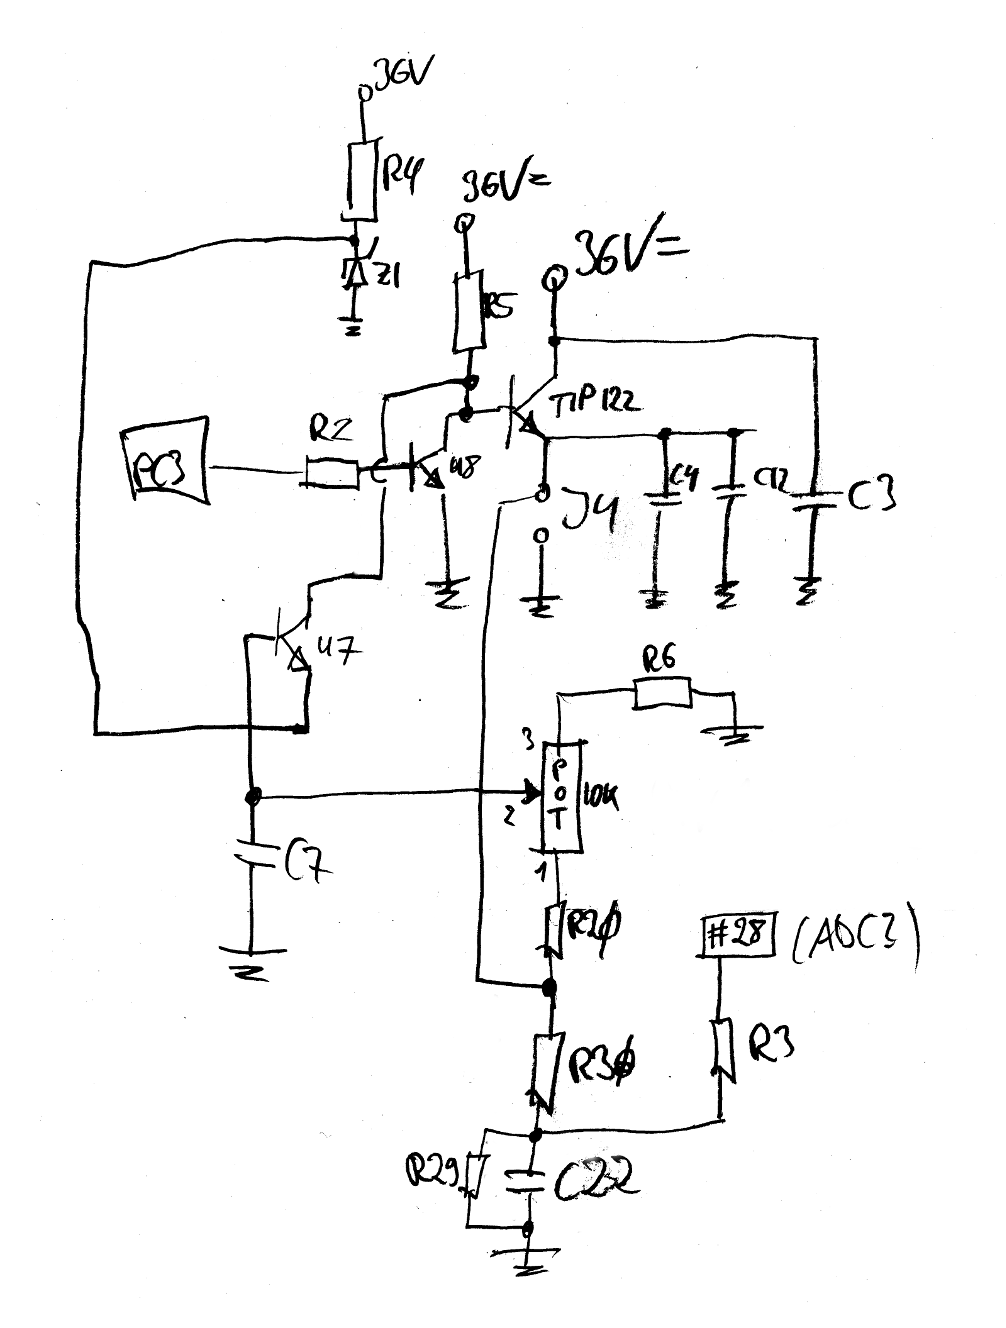 36V
R4
36V=
36V=
Z1
R5
TIP122
R2
PC3
U8
C4
C12
C3
J4
U7
R6
3
POT
10K
2
1
C7
R20
#28
(ADC3)
R30
R3
R29
C22